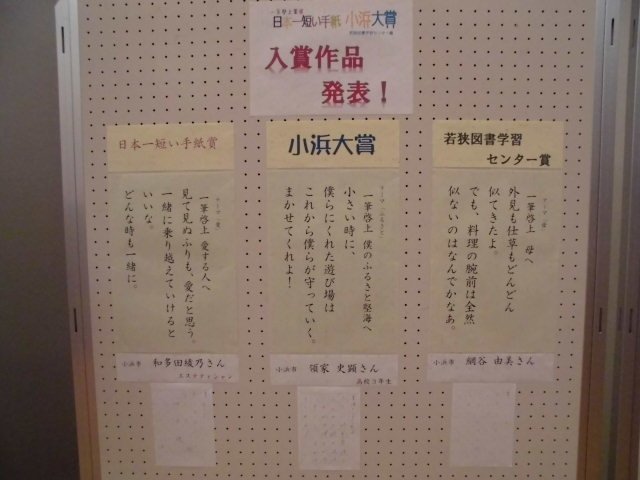 一筆啓上
日本一短い手紙 小浜大賞
入賞作品
発表！
日本一短い手紙賞
一筆啓上 愛する人へ
見て見ぬふりも、愛だと思う。
一緒に乗り越えていけると
いいな。
どんな時も一緒に。
小浜市 和多田綾乃さん
エステティシャン
小浜大賞
テーマ「ふるさと」
一筆啓上 僕のふるさと堅海へ
小さい時に、
僕らにくれた遊び場は
これから僕らが守っていく。
まかせてくれよ！
小浜市 領家 史顕さん
高校3年生
若狭図書学習
センター賞
一筆啓上 母へ
外見も仕草もどんどん
似てきたよ。
でも、料理の腕前は全然
似ないのはなんでかなあ。
小浜市 網谷 由美さん